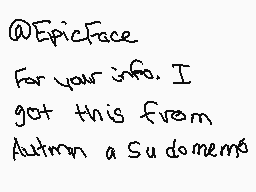 @EpicFace
For your info. I
got this from
Autmn a Sudomemo